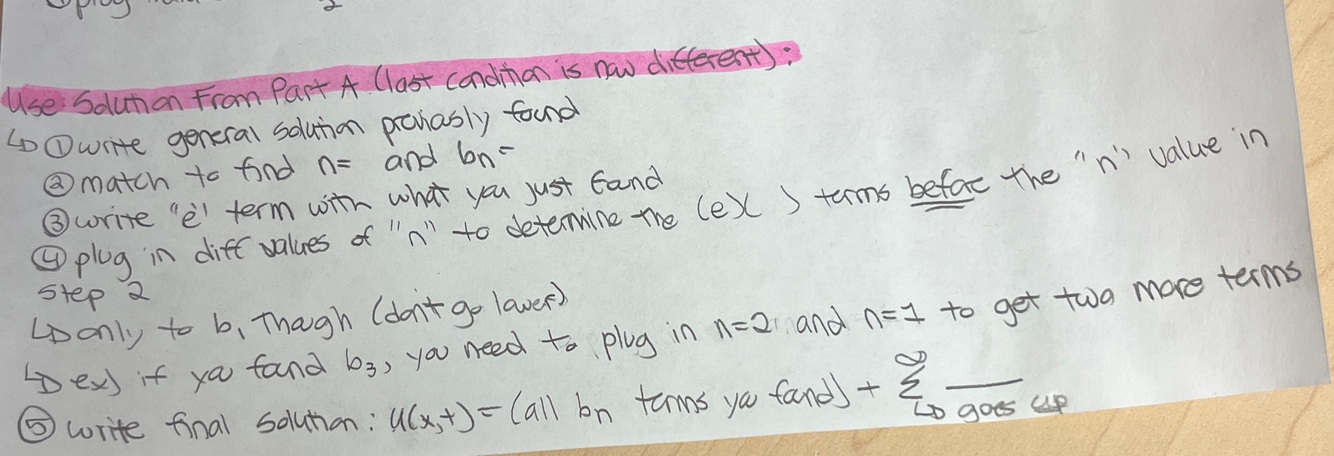 ① plug
2
Use Solution From Part A (last condition is now different):
↳ ① write general solution previously found
② match to find n= and bn=
③ write "e" term with what you just found
④ plug in diff values of "n" to determine the (ex ) terms before the "n" value in
step 2
↳ only to b₁ though (don't go lower)
↳ ex) if you found b₃, you need to plug in n=2 and n=1 to get two more terms
⑤ write final solution: u(x,t) = (all bn terms you found) + ∞ Σ ___
↳ goes up